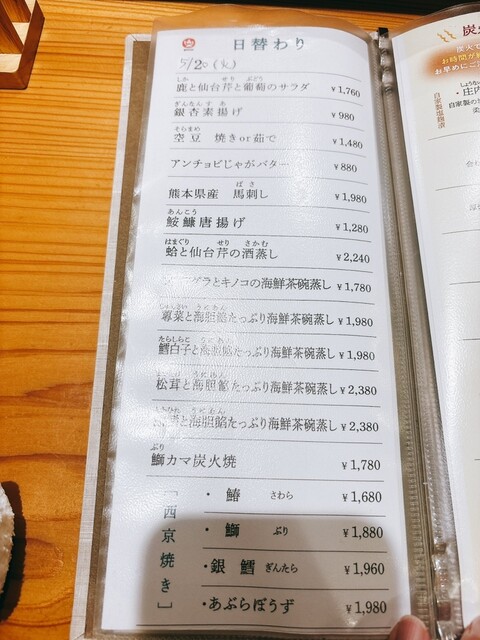 日替わり
5/20 (火)
しか せり ぶどう
鹿と仙台芹と葡萄のサラダ ¥1,760
ぎんなん す あ
銀杏素揚げ ¥980
そらまめ
空豆 焼きor茹で ¥1,480
アンチョビじゃがバタ… ¥880
ばさ
熊本県産 馬刺し ¥1,980
あんこう
鮟鱇唐揚げ ¥1,280
はまぐり せり さかむ
蛤と仙台芹の酒蒸し ¥2,240
グラとキノコの海鮮茶碗蒸し ¥1,780
じゅんさい うにあん
蓴菜と海胆餡たっぷり海鮮茶碗蒸し ¥1,980
たらしらこ うにあん
鱈白子と海胆餡たっぷり海鮮茶碗蒸し ¥1,980
うにあん
松茸と海胆餡たっぷり海鮮茶碗蒸し ¥2,380
うにあん
と海胆餡たっぷり海鮮茶碗蒸し ¥2,380
ぶり
鰤カマ炭火焼 ¥1,780
［西京焼き］
・鰆 さわら ¥1,680
・鰤 ぶり ¥1,880
・銀鱈 ぎんたら ¥1,960
・あぶらぼうず ¥1,980
炭火
炭火で
お時間が
お早めにご
・庄内
自家製の
自家製塩麹漬